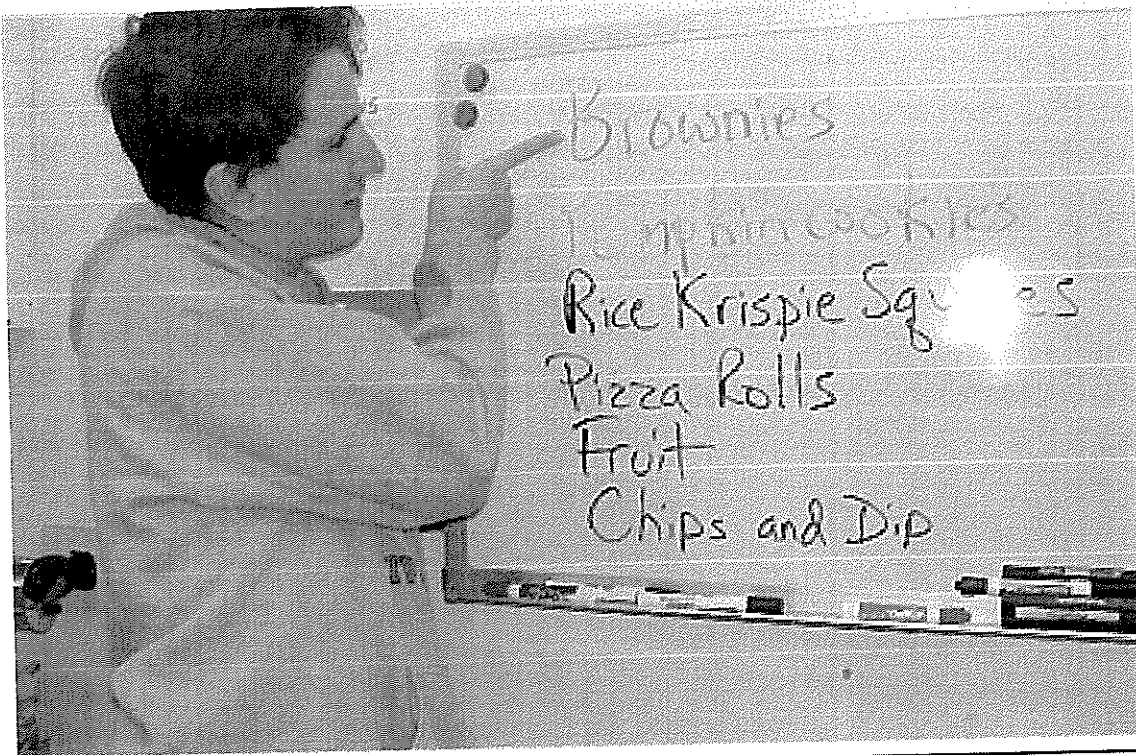 Brownies
Pumpkin cookies
Rice Krispie Squares
Pizza Rolls
Fruit
Chips and Dip